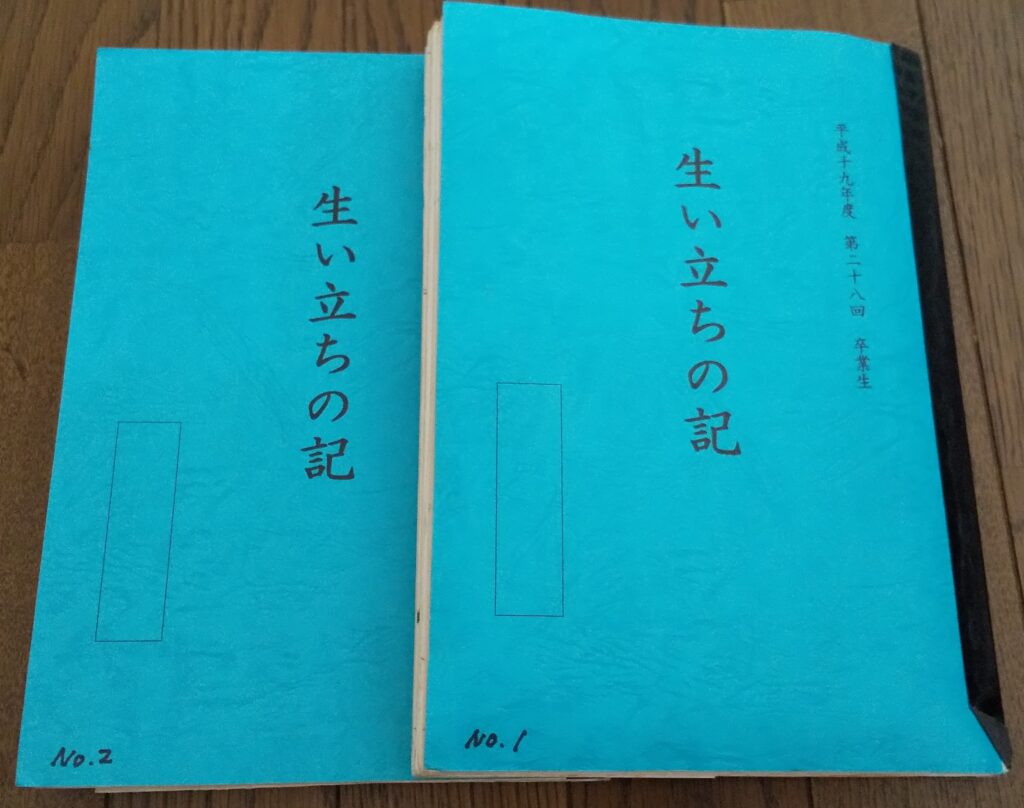 平成十九年度 第二十八回 卒業生
生い立ちの記
No.1
生い立ちの記
No.2